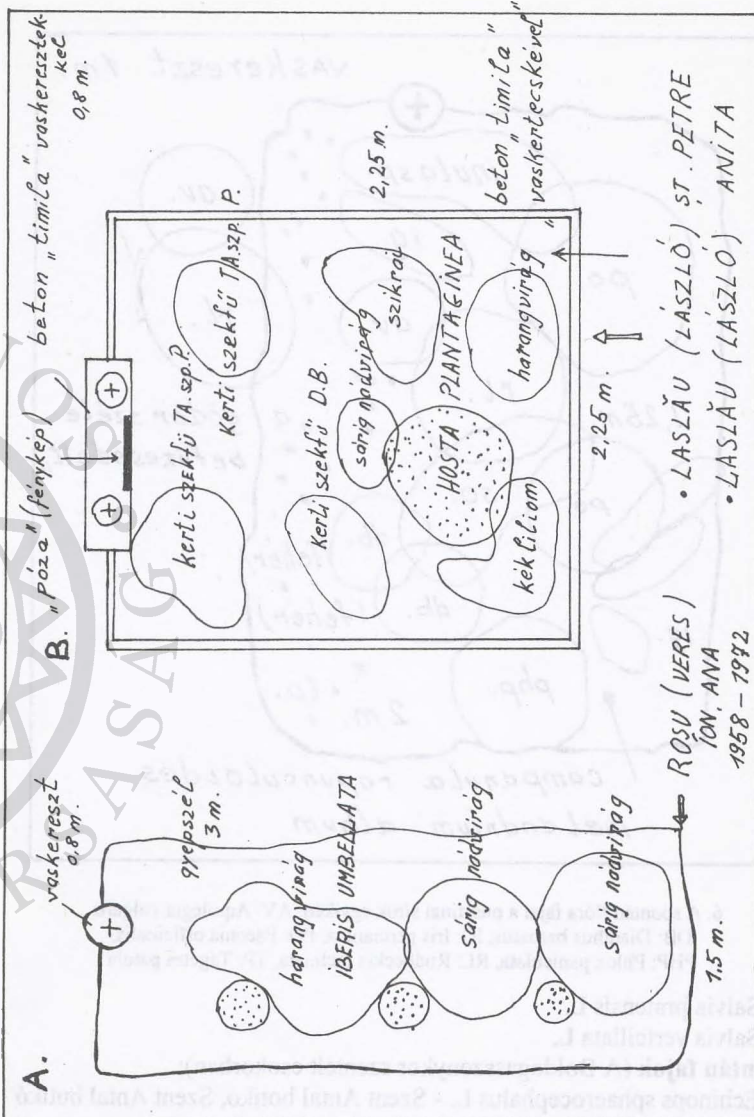 A.
vaskereszt
0,8 m.
gyepszél
3 m.
harangvirág
IBERIS UMBELLATA
Sárig nádvirág
Sárig nádvirág
1,5 m.
ROȘU (VERES)
ION, ANA
1958 – 1972
B. „póza" (fénykép)
beton „timila" vaskeresztek-
kel
0,8 m.
kerti szektü TA.szp.P.
kerti szektű TA.szp. P.
kerti szektű D.B.
sárig nádvirág
szikrav
HOSTA PLANTAGINEA
harangvirág
kék liliom
2,25 m.
2,25 m.
beton „timila"
vaskertecskével"
• LASLĂU (LÁSZLÓ) ȘT. PETRE
• LASLĂU (LÁSZLÓ) ANITA